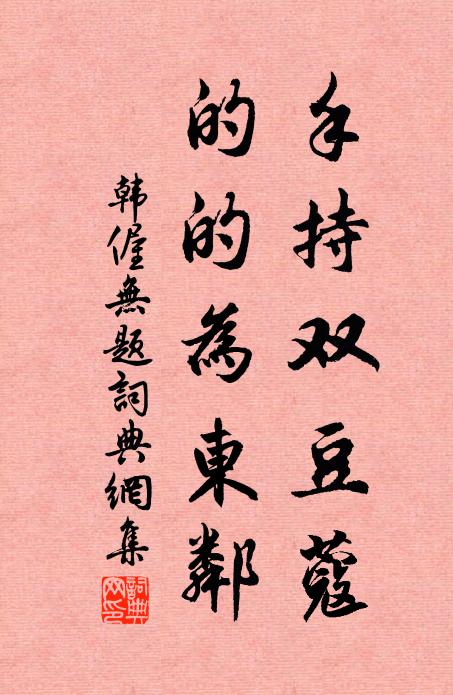 手持双豆蔻
的的為東鄰
韩偓無題詞典網集
詞典网印